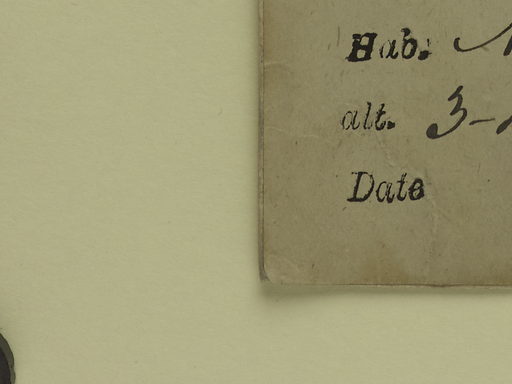 Hab:
alt. 3-
Date